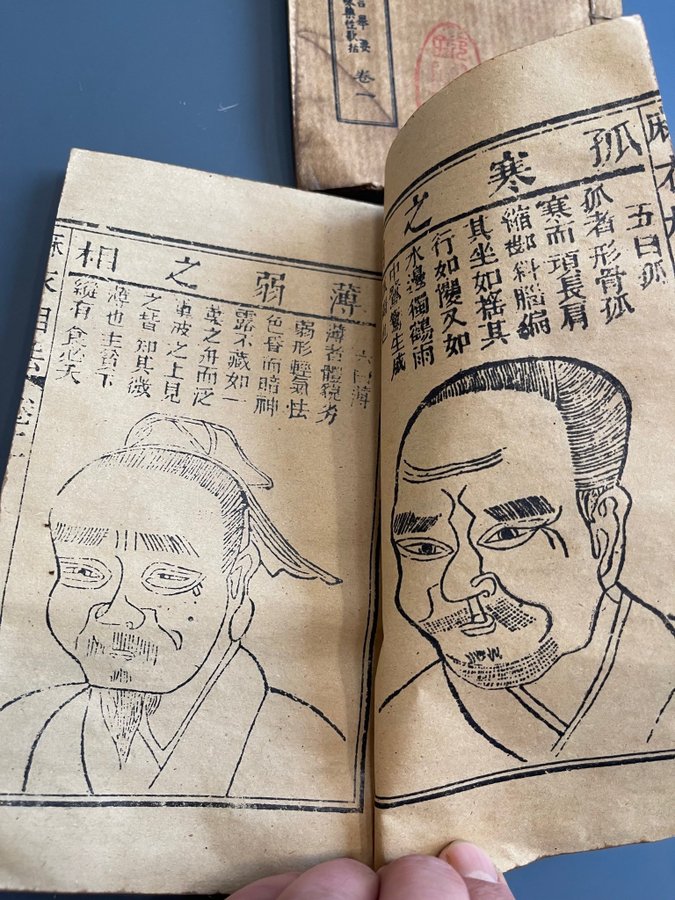 藥性歌括 卷一
麻衣
孤寒之
五曰孤
孤者形骨孤
寒而項長肩
縮脚斜腦偏
其坐如搖其
行如攫又如
水邊獨鶴雨
中鷺鷥生成
薄弱之相
六曰薄
薄者體貌劣
弱形輕氣怯
色昏而暗神
露不藏如一
葉之舟而泛
重波之上見
之皆知其微
薄也主貧下
縱有食必夭
麻衣相法